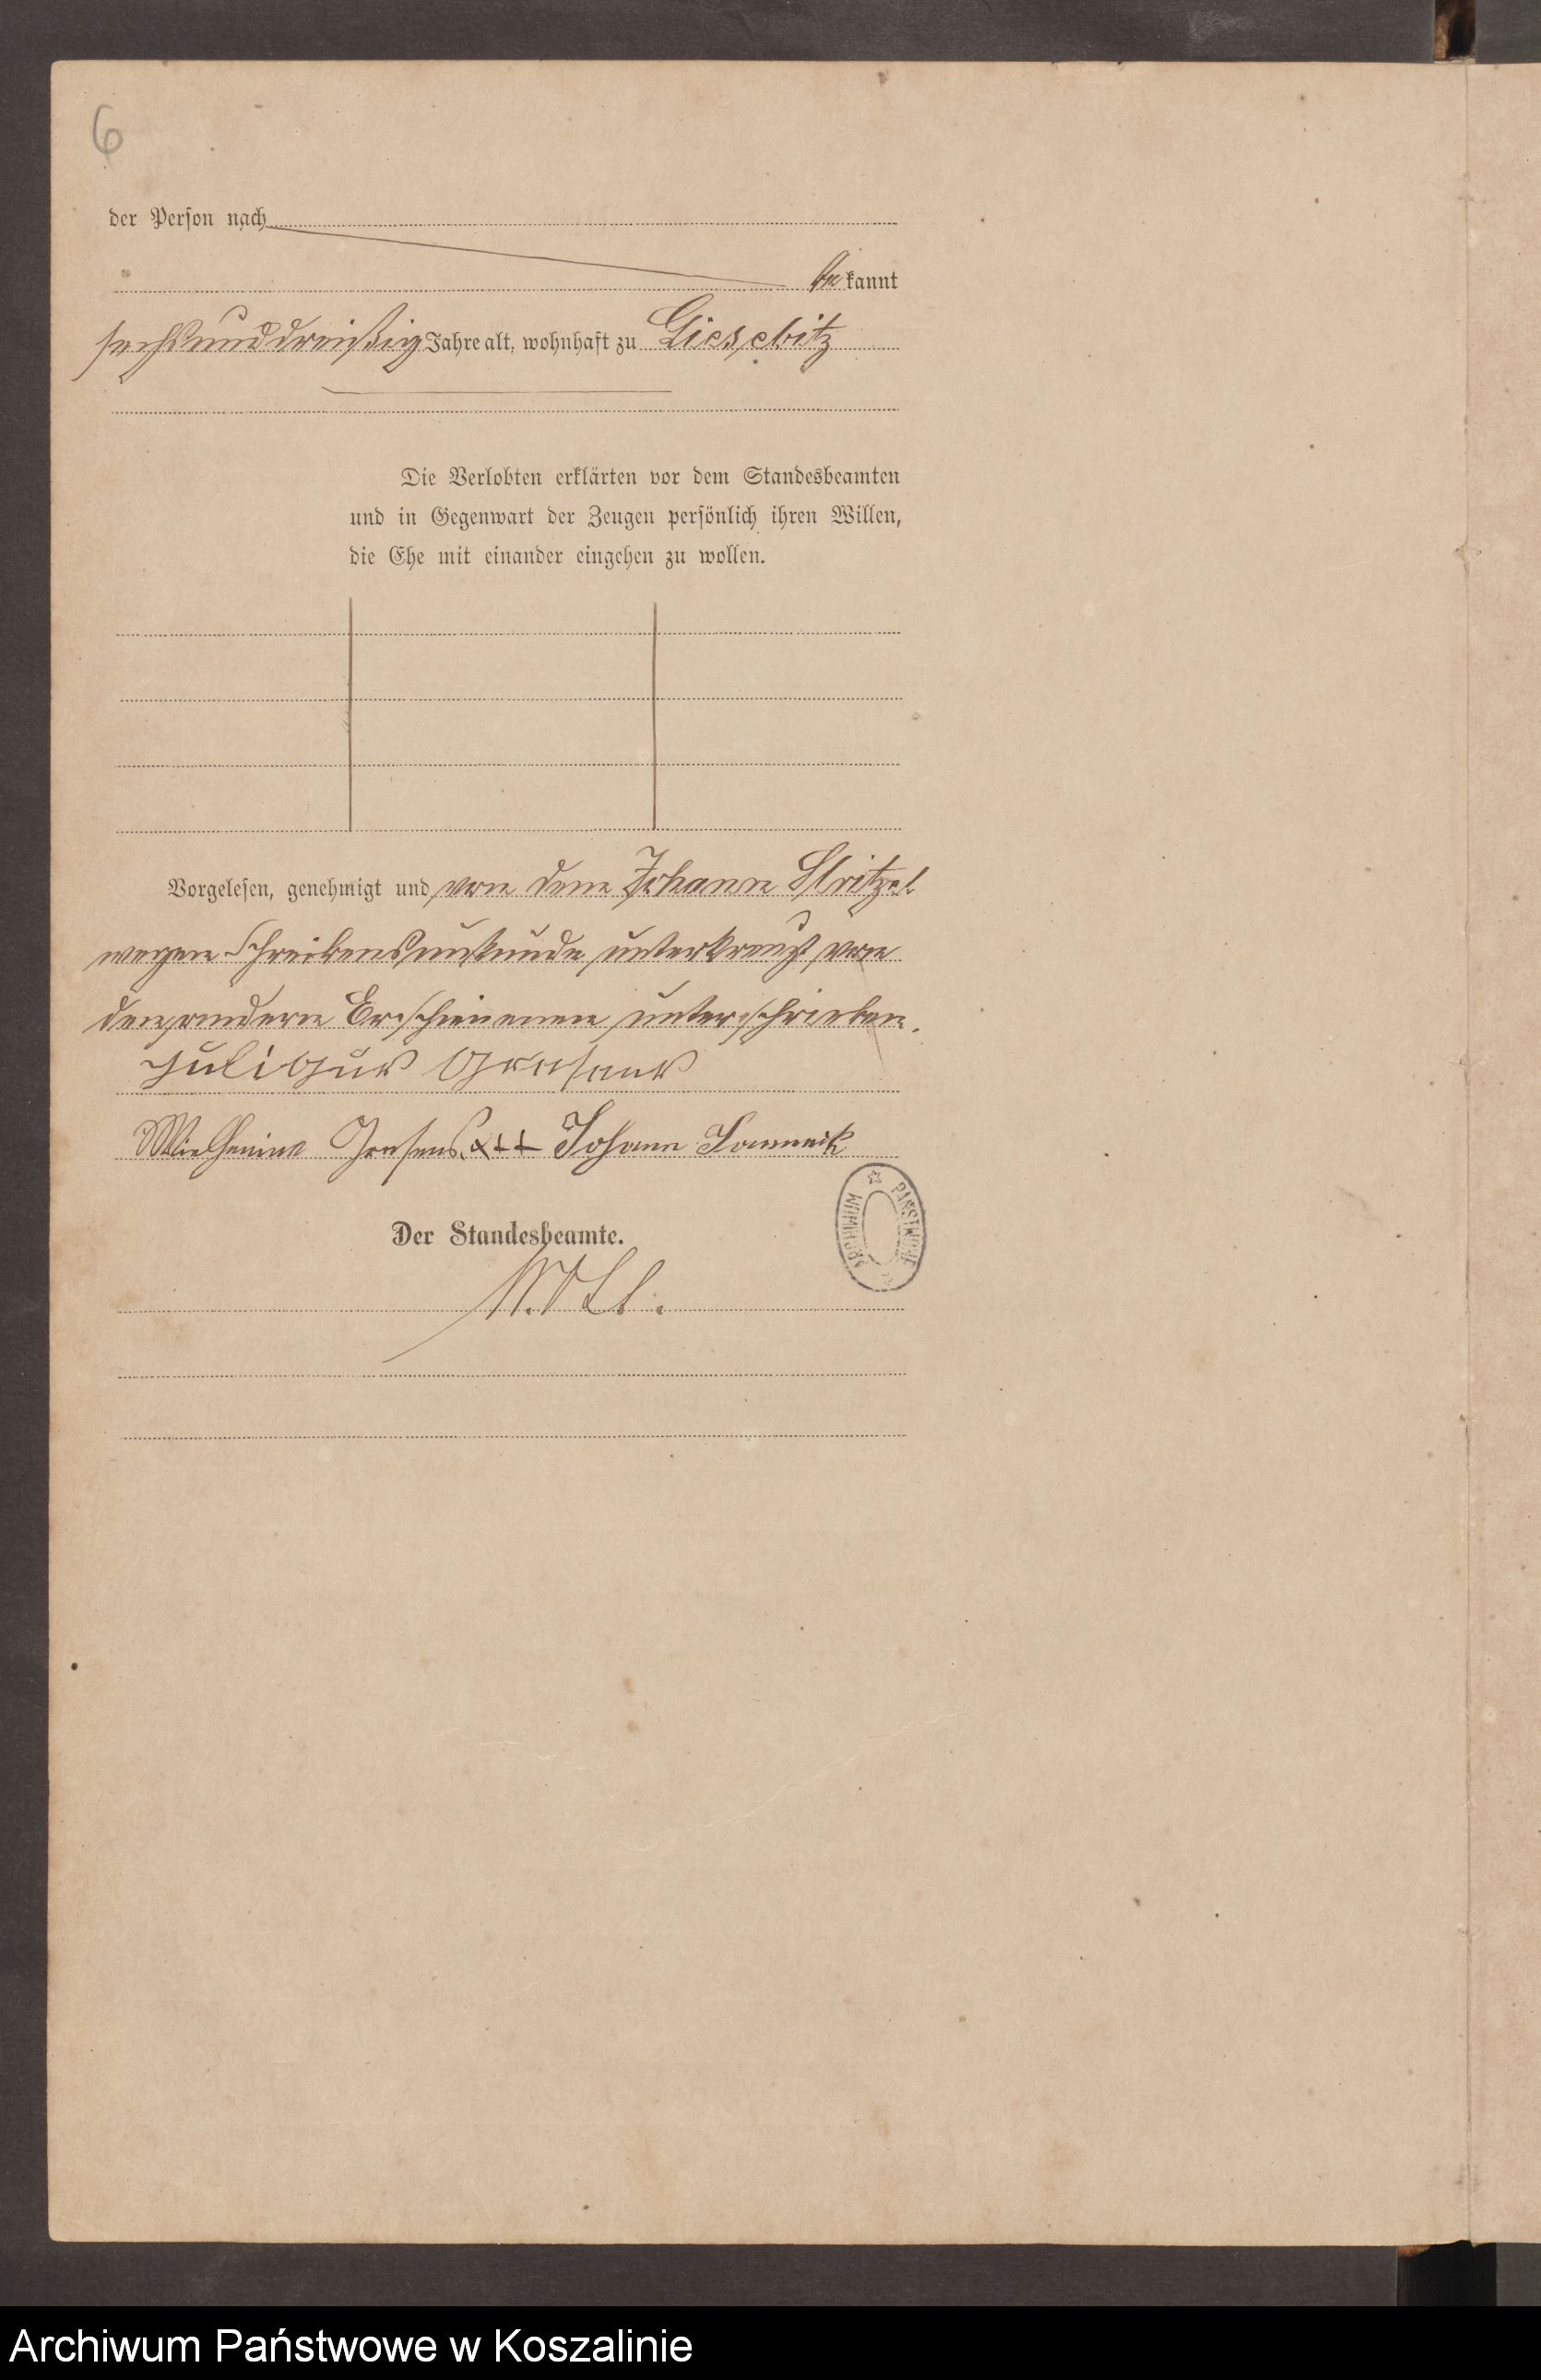 6
der Person nach
bekannt
sechsunddreißig Jahre alt, wohnhaft zu Giesebitz
Die Verlobten erklärten vor dem Standesbeamten
und in Gegenwart der Zeugen persönlich ihren Willen,
die Ehe mit einander eingehen zu wollen.
Vorgelesen, genehmigt und von dem Johann Stritzel
wegen Schreibensunkunde unterkreuzt von
den andern Erschienenen unterschrieben.
+++ Johann
Der Standesbeamte.
ARCHIWUM PAŃSTWOWE
Archiwum Państwowe w Koszalinie